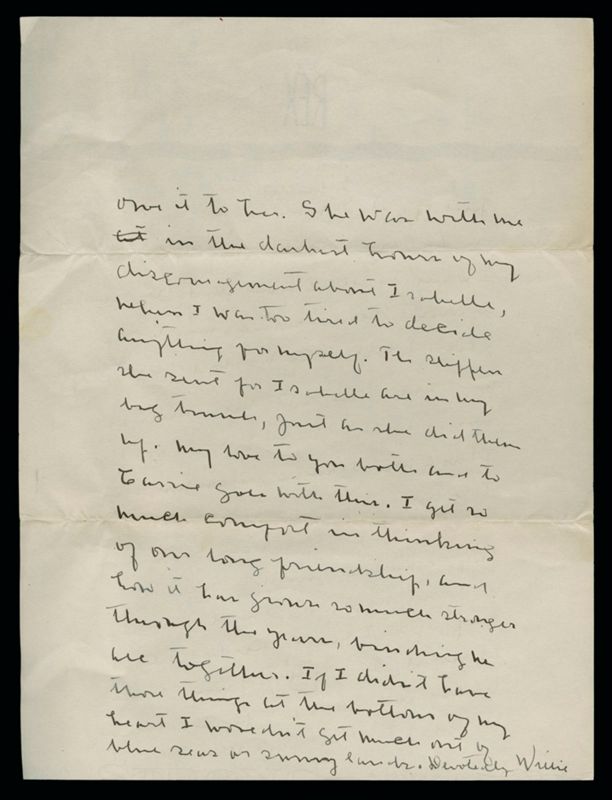 REX
owe it to her. She was with me
it in the darkest hours of my
discouragement about Isabelle,
when I was too tired to decide
anything for myself. The slippers
she sent for Isabelle are in my
big trunk, just as she did them
up. My love to you both and to
Carrie goes with this. I get so
much comfort in thinking
of our long friendship, and
how it has grown so much stronger
through the years, binding us
all together. If I didn't have
those things at the bottom of my
heart I wouldn't get much out of
blue seas or sunny lands. Devotedly Willie